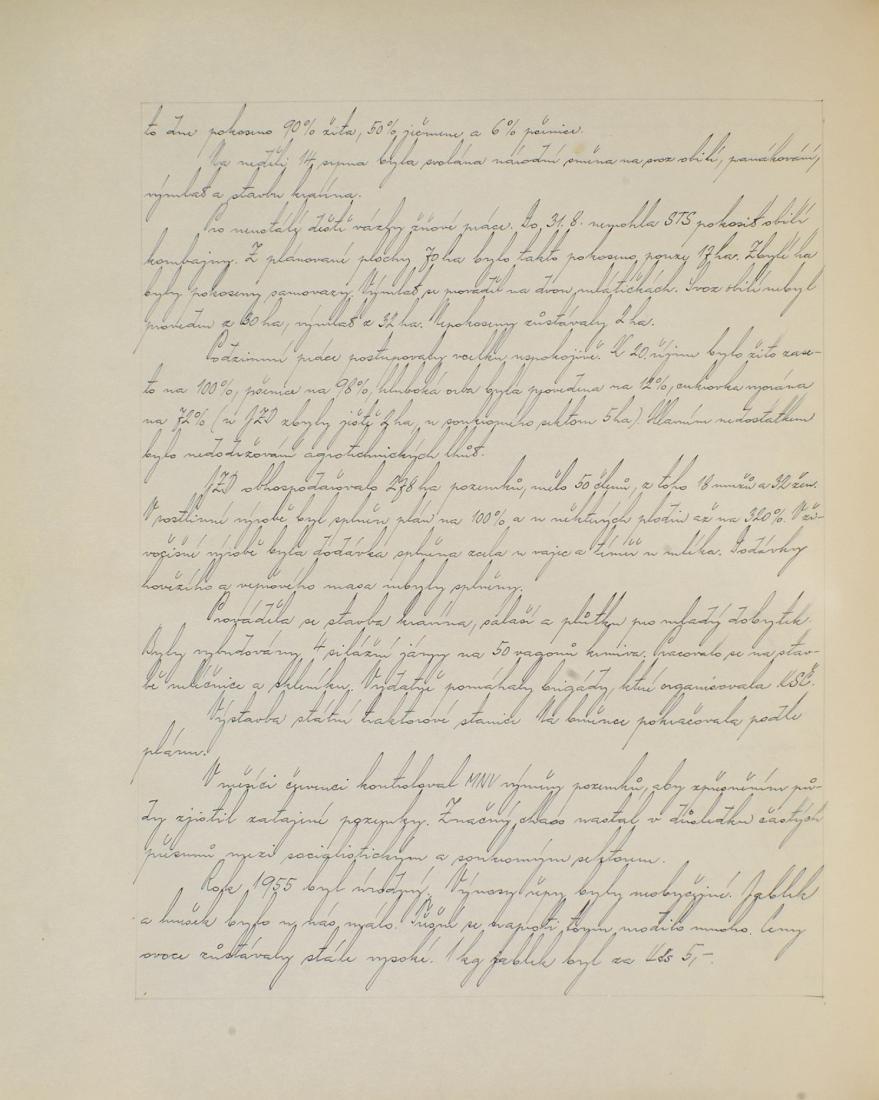 to dne pokoseno 90% žita, 50% ječmene a 6% pšenice.
Na neděli 14. srpna byla svolána národní směna na svoz obilí, panákování,
výmlat a stavbu kravína.
Pro neustálé deště vázly žňové práce. Do 31. 8. nemohla STS pokosit obilí
kombajny. Z plánované plochy 70 ha bylo takto pokoseno pouze 17 ha. Zbylé ha
byly pokoseny samovazy. Výmlat se prováděl na dvou mlátičkách. Svoz obilí nebyl
proveden z 30 ha, výmlat z 32 ha. Nepokoseny zůstávaly 2 ha.
Podzimní práce postupovaly vcelku uspokojivě. K 20. říjnu bylo žito zase-
to na 100%, pšenice na 98%, hluboká orba byla provedena na 12%, cukrovka vyorána
na 72% (v JZD zbyly ještě 2 ha, u soukromého sektoru 5 ha). Hlavním nedostatkem
bylo nedodržování agrotechnických lhůt.
JZD obhospodařovalo 278 ha pozemků, mělo 50 členů, z toho 18 mužů a 32 žen.
V rostlinné výrobě byl splněn plán na 100% a u některých plodin až na 320%. V ži-
vočišné výrobě byla dodávka splněna zcela u vajec a téměř u mléka. Dodávky
hovězího a vepřového masa nebyly splněny.
Prováděla se stavba kravína, salaší a přístřešku pro mladý dobytek.
Byly vybudovány 4 silážní jámy na 50 vagonů krmiva. Pracovalo se na stav-
bě mléčnice a skleníku. Vydatně pomáhaly brigády, které organisovala KSČ.
Výstavba státní traktorové stanice Na lučince pokračovala podle
plánu.
V měsíci červenci kontroloval MNV výměry pozemků, aby zpřesněním pů-
dy zjistil zatajené pozemky. Značný chaos nastal v důsledku častých
přesunů mezi socialistickým a soukromým sektorem.
Rok 1955 byl úrodný. Výnosy řepy byly neobyčejné. Jablek
a hrušek bylo u nás málo. Třešní se naproti tomu urodilo mnoho. Ceny
ovoce zůstávaly stále vysoké. 1 kg jablek byl za Kčs 5,-.